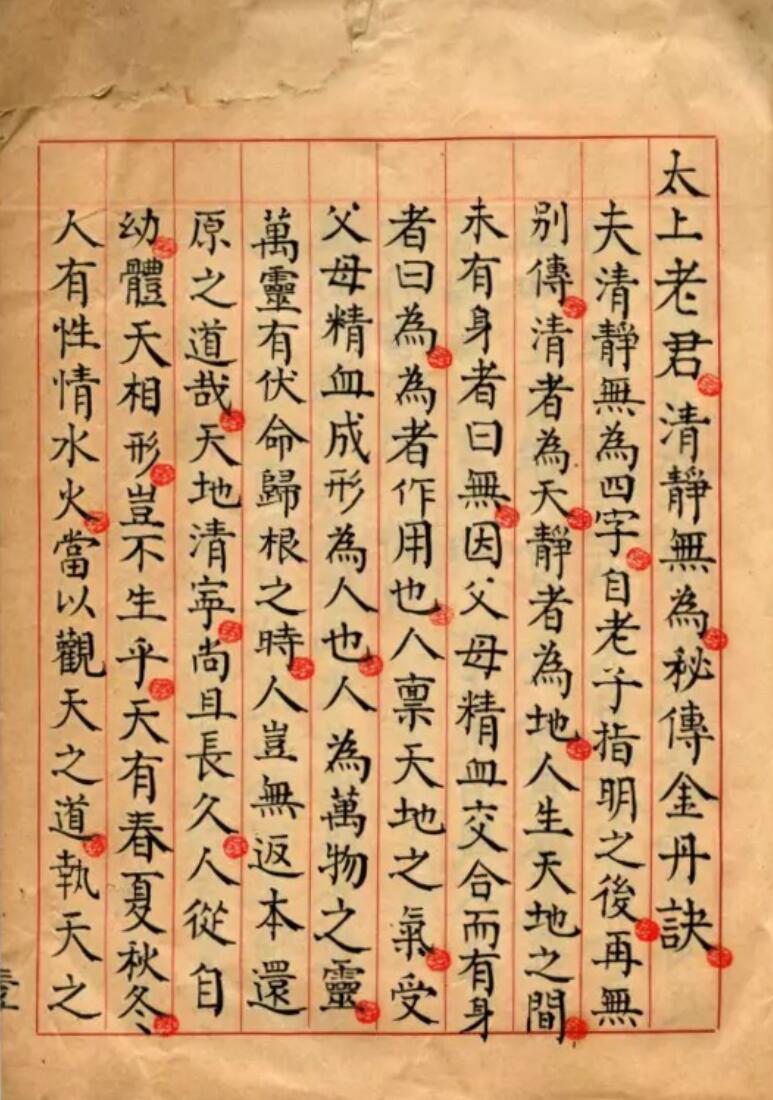 太上老君清靜無為秘傳金丹訣
夫清靜無為四字自老子指明之後再無
別傳清者為天靜者為地人生天地之間
未有身者曰無因父母精血交合而有身
者曰為為者作用也人禀天地之氣受
父母精血成形為人也人為萬物之靈
萬靈有伏命歸根之時人豈無返本還
原之道哉天地清寧尚且長久人從自
幼體天相形豈不生乎天有春夏秋冬
人有性情水火當以觀天之道執天之